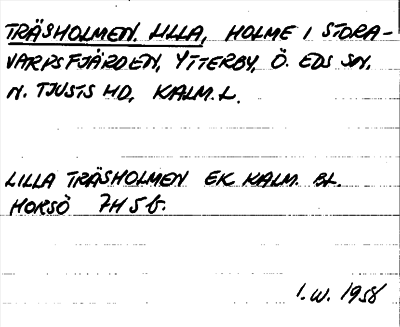 TRÄSHOLMEN. LILLA, HOLME I STORA-
VARPSFJÄRDEN, YTTERBY, Ö. EDS SN.
N. TJUSTS HD, KALM. L.
LILLA TRÄSHOLMEN EK KALM. BL.
HORSÖ 7H 5 b.
I. W. 1958